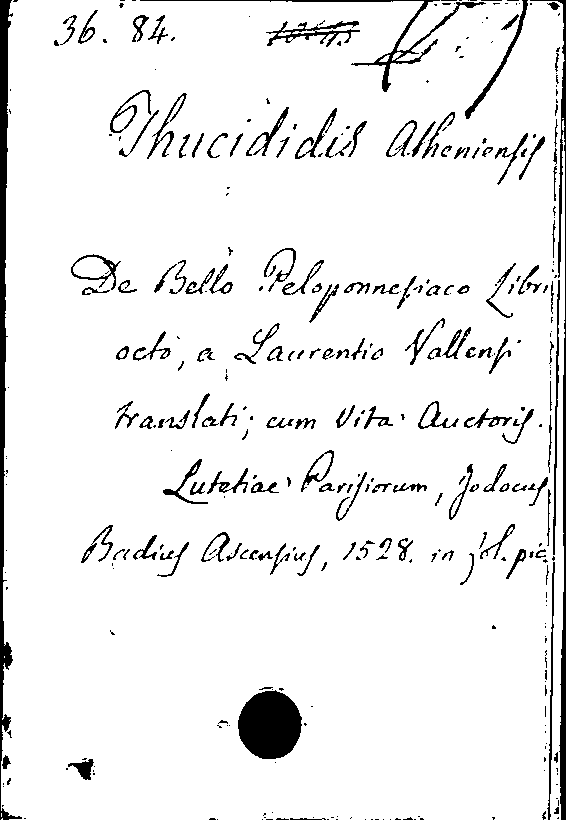 36. 84.
Thucididis Atheniensis
De Bello Peloponnesiaco Libri
octo, a Laurentio Vallensi
translati; cum Vita Auctoris.
Lutetiae Parisiorum, Jodocus
Badius Ascensius, 1528. in fol. pic.